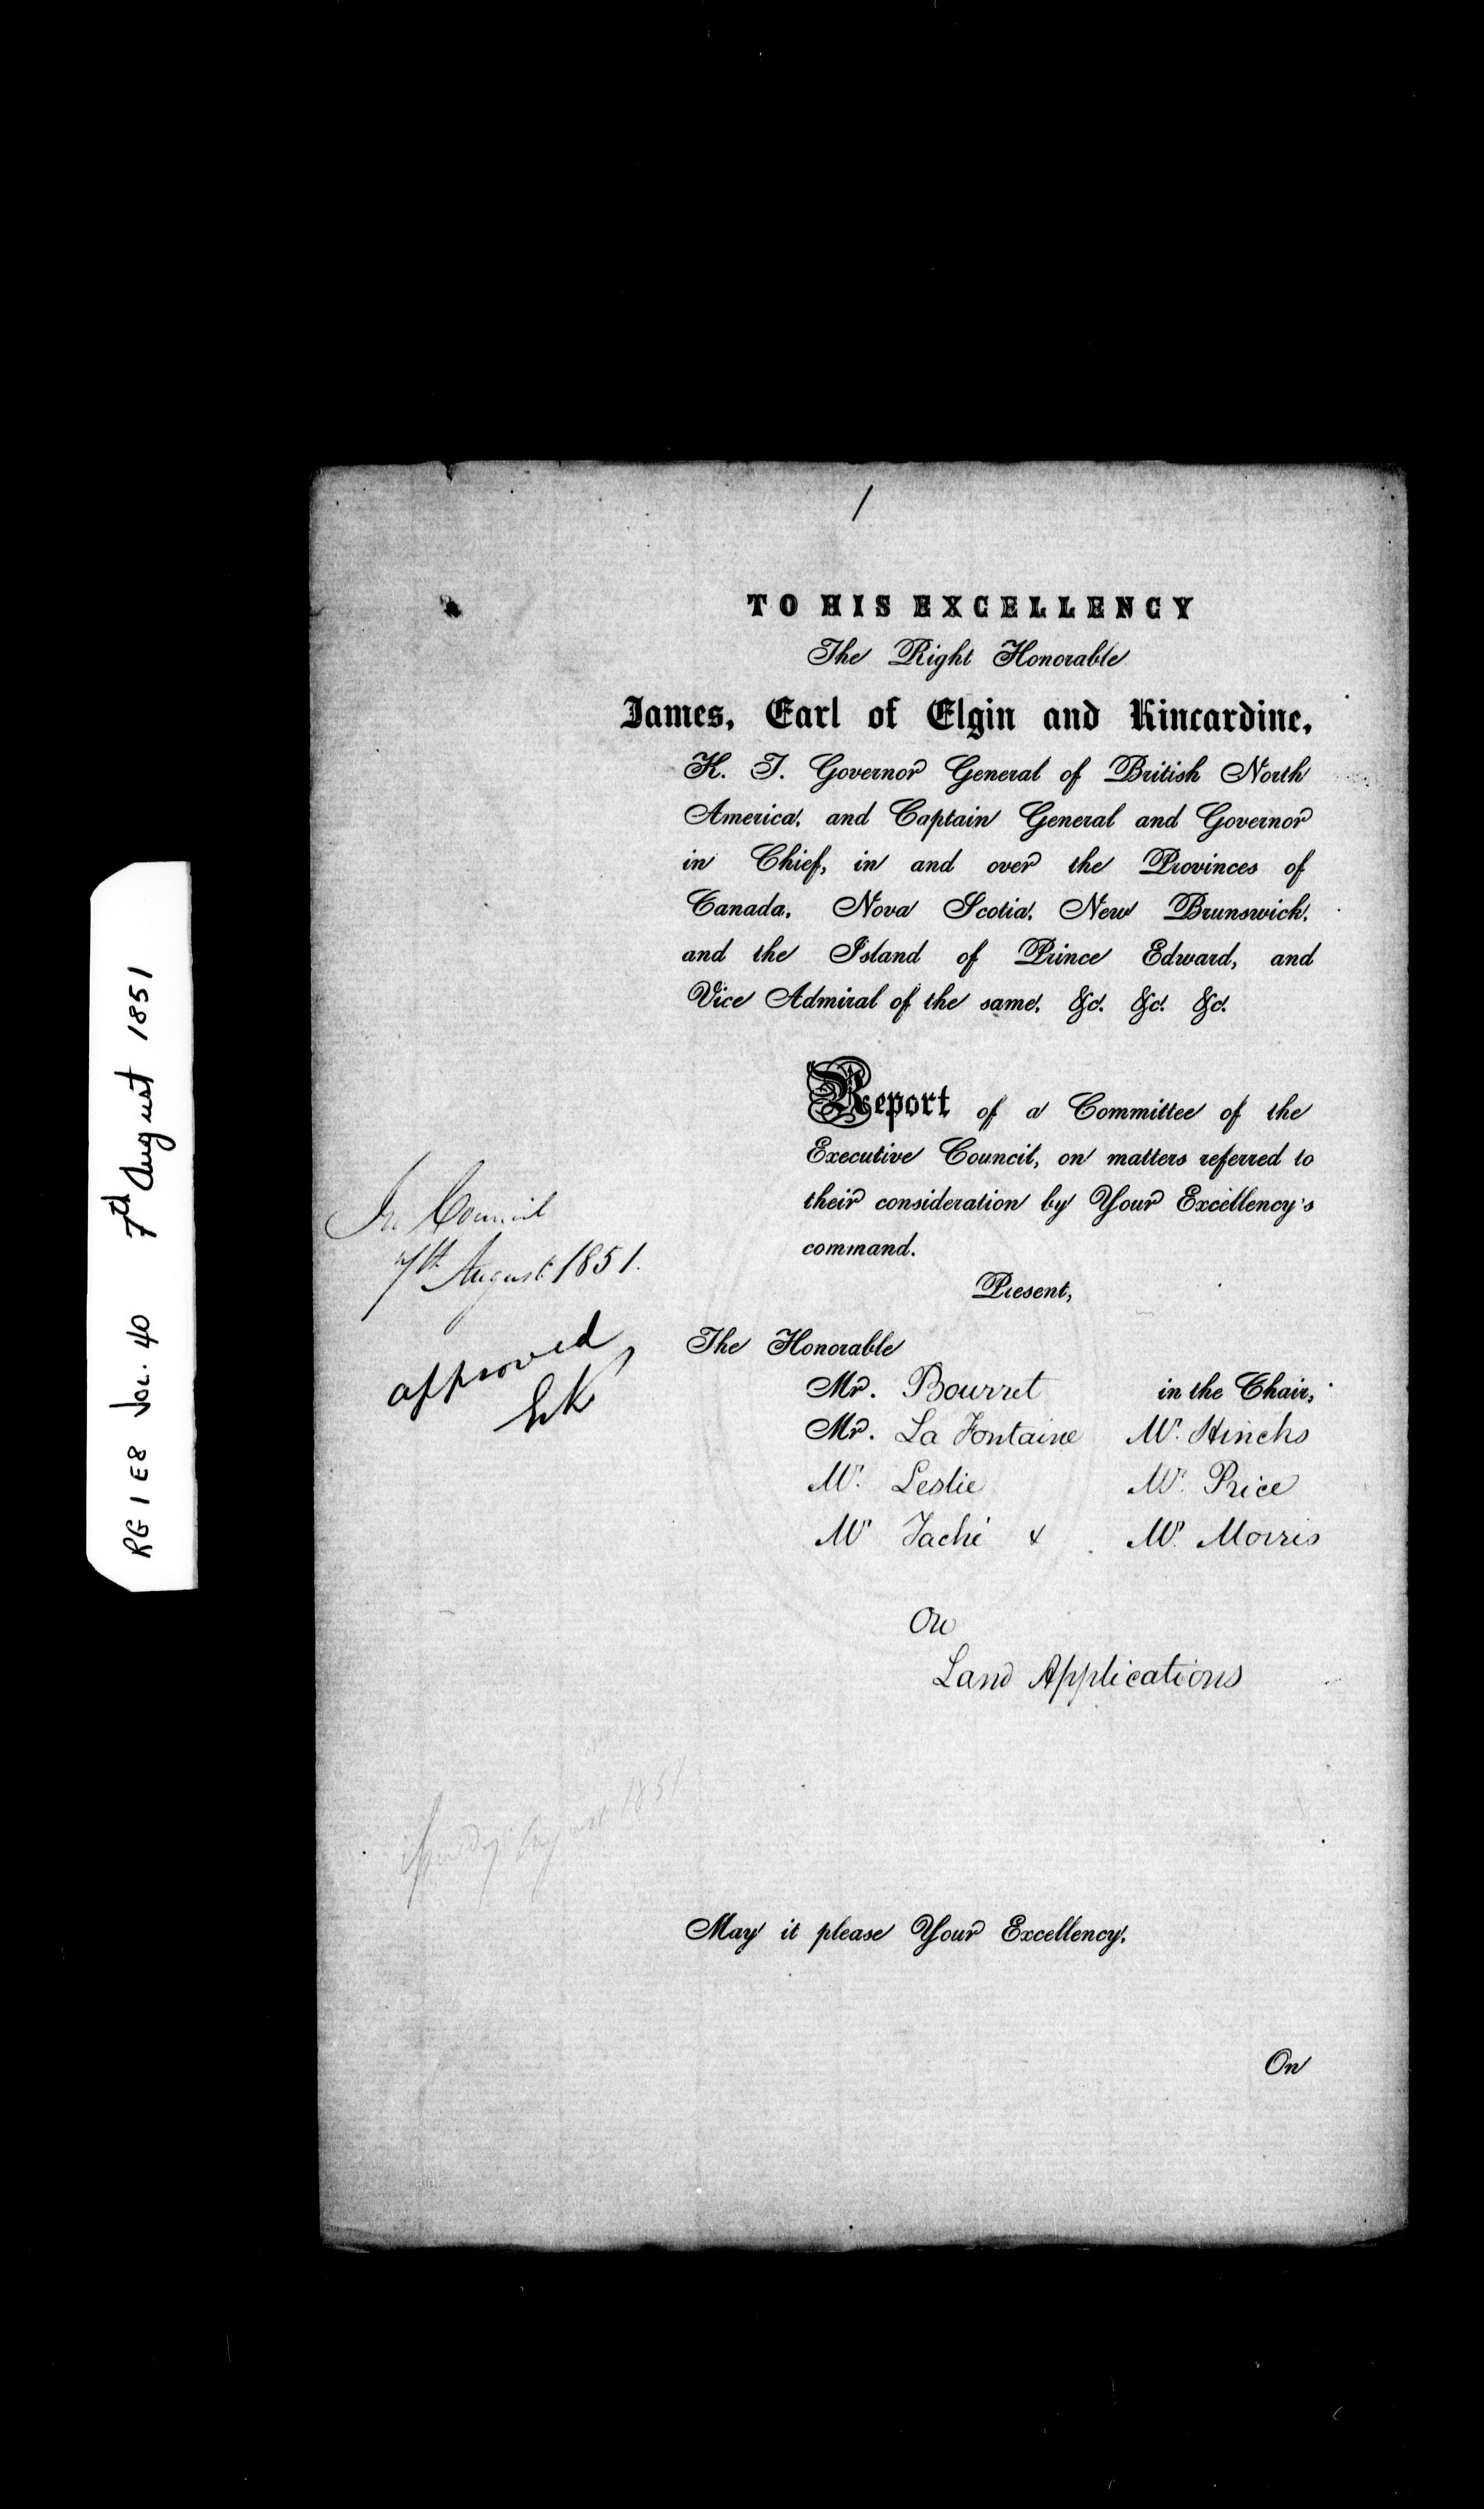 RG 1 E8 Vol. 40 7th August 1851
1
TO HIS EXCELLENCY
The Right Honorable
James, Earl of Elgin and Kincardine,
K. T. Governor General of British North
America, and Captain General and Governor
in Chief, in and over the Provinces of
Canada, Nova Scotia, New Brunswick,
and the Island of Prince Edward, and
Vice Admiral of the same, &c. &c. &c.
Report of a Committee of the
Executive Council, on matters referred to
their consideration by Your Excellency's
command.
In Council
7th August 1851.
approved
E&K
Present,
The Honorable
Mr. Bourret in the Chair,
Mr. La Fontaine Mr. Hincks
Mr. Leslie Mr. Price
Mr Taché & Mr. Morris
On
Land Applications
August 1851
May it please Your Excellency.
On